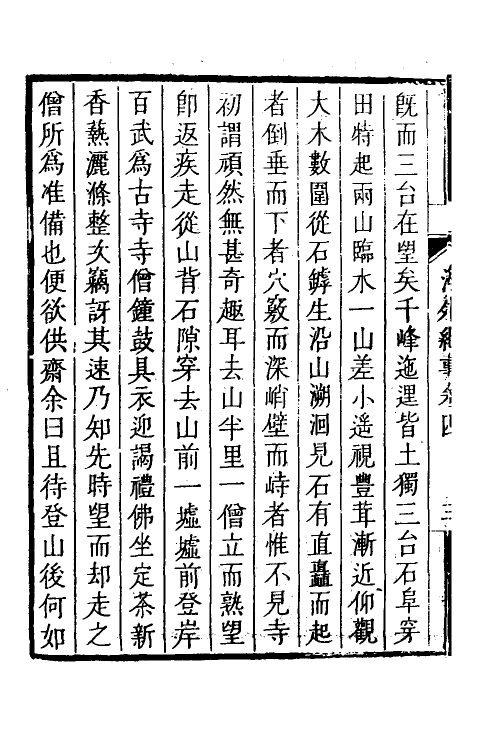 既而三台在望矣千峰迤逦皆土獨三台石阜穿
田特起兩山臨水一山差小遥視豐茸漸近仰觀
大木數圍從石罅生沿山溯洄見石有直矗而起
者倒垂而下者穴竅而深峭壁而峙者惟不見寺
初謂頑然無甚奇趣耳去山半里一僧立而熟望
卽返疾走從山背石隙穿去山前一墟墟前登岸
百武爲古寺寺僧鐘鼓具衣迎謁禮佛坐定茶新
香爇灑滌整次竊訝其速乃知先時望而却走之
僧所爲准備也便欲供齋余曰且待登山後何如